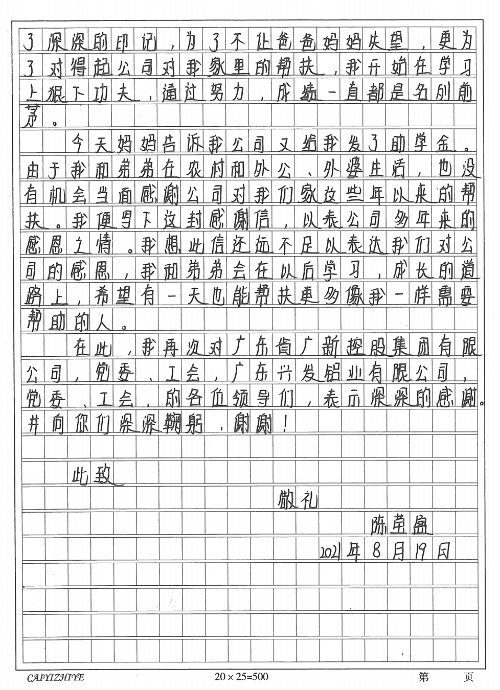 了深深的印记，为了不让爸爸妈妈失望，更为
了对得起公司对我家里的帮扶，我开始在学习
上狠下功夫，通过努力，成绩一直都是名列前
茅。
今天妈妈告诉我公司又给我发了助学金。
由于我和弟弟在农村和外公、外婆生活，也没
有机会当面感谢公司对我们家这些年以来的帮
扶。我便写下这封感谢信，以表公司多年来的
感恩之情。我想此信还远不足以表达我们对公
司的感恩，我和弟弟会在以后学习，成长的道
路上，希望有一天也能帮扶更多像我一样需要
帮助的人。
在此，我再次对广东省广新控股集团有限
公司，党委、工会，广东兴发铝业有限公司，
党委、工会，的各位领导们，表示深深的感谢。
并向你们深深鞠躬，谢谢！
此致
敬礼
陈莹盈
2021年8月19日
CAIYIZHIYE 20×25=500 第 页